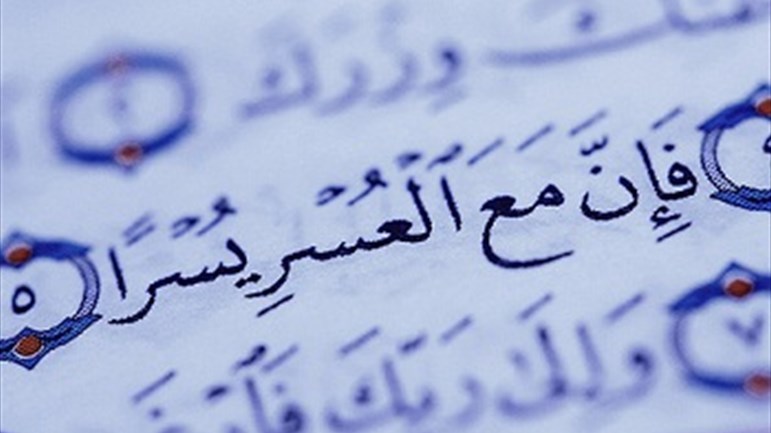 وِزْرَكَ ٢
فَإِنَّ مَعَ ٱلْعُسْرِ يُسْرًا ٥
٧ وَإِلَىٰ رَبِّكَ فَٱرْغَب